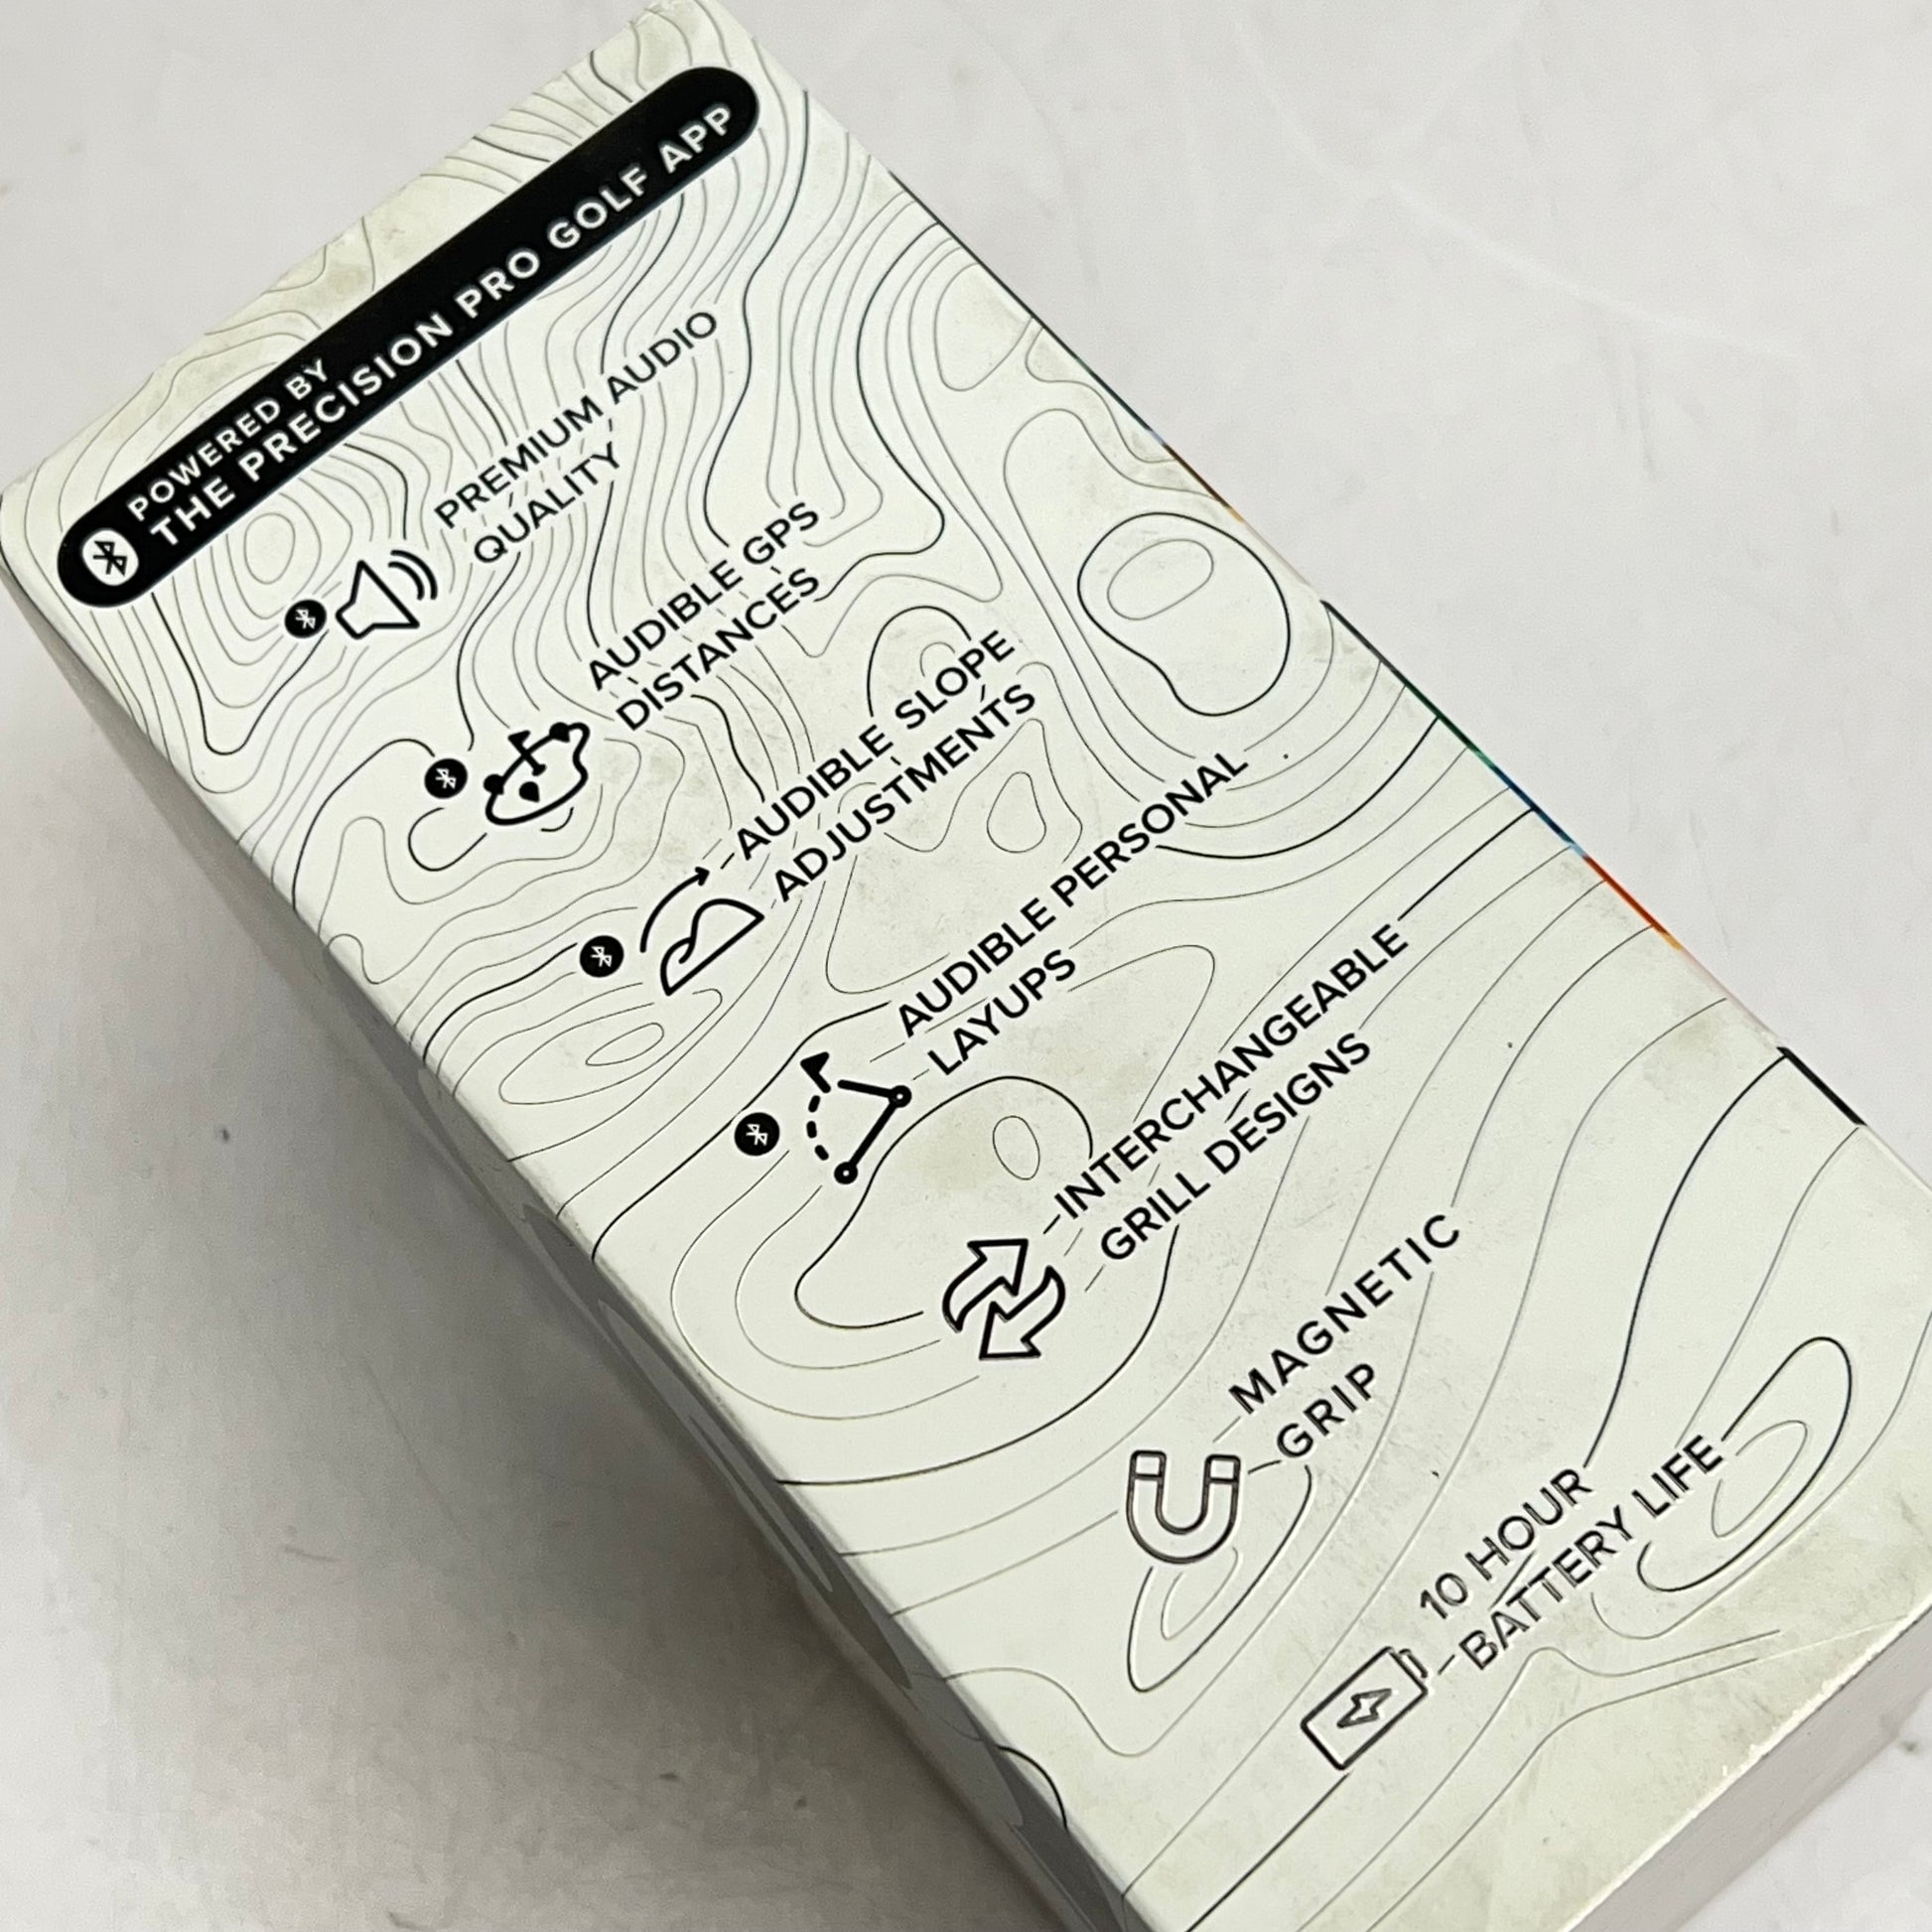 POWERED BY
THE PRECISION PRO GOLF APP
PREMIUM AUDIO
QUALITY
AUDIBLE GPS
DISTANCES
AUDIBLE SLOPE
ADJUSTMENTS
AUDIBLE PERSONAL
LAYUPS
INTERCHANGEABLE
GRILL DESIGNS
MAGNETIC
GRIP
10 HOUR
BATTERY LIFE